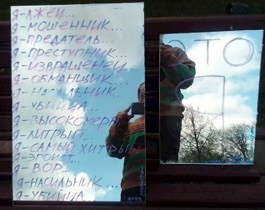 Я-ЛЖЕЦ...
Я-МОШЕННИК...
Я-ПРЕДАТЕЛЬ...
Я-ПРЕСТУПНИК...
Я-ИЗВРАЩЕНЕЦ
Я-ОБМАНЩИК...
Я-НАСИЛЬНИК...
Я-УБИЙЦА...
Я-ВЫСОКОМЕР
Я-ХИТРЫЙ...
Я-САМЫЙ ХИТРЫЙ
Я-ЭГОИСТ...
Я-ВОР...
Я-НАСИЛЬНИК...
Я-УБИЙЦА
ЭТО
Я